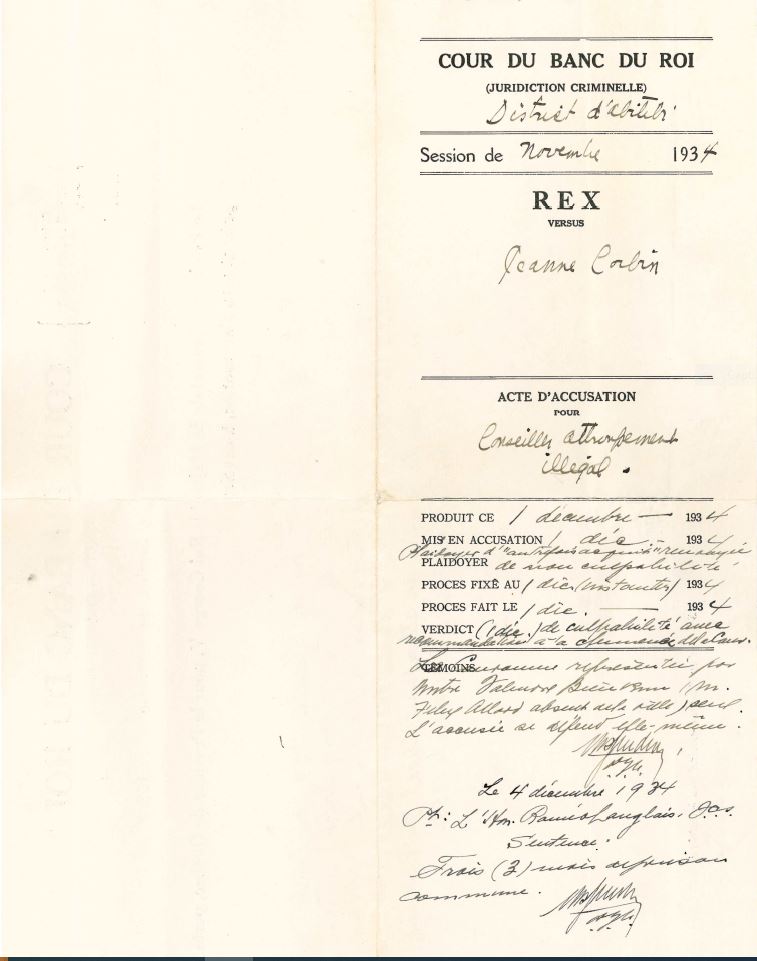 COUR DU BANC DU ROI
(JURIDICTION CRIMINELLE)
District d'abitibi
Session de Novembre 1934
REX
VERSUS
Jeanne Corbin
ACTE D'ACCUSATION
POUR
Conseiller attroupement
illégal.
PRODUIT CE 1 décembre — 1934
MIS EN ACCUSATION 1 déc. — 1934
Plaidoyer d'"autrefois acquit" renvoyé
PLAIDOYER de non culpabilité
PROCES FIXÉ AU 1 déc. (instanter) 1934
PROCES FAIT LE 1 déc. — 1934
VERDICT (1 déc.) de culpabilité avec
recommandation à la clémence de la Cour.
TÉMOINS
La Couronne représentée par
(M.
Felix Allard absent de la ville) seul.
L'accusée se défend elle-même.
Le 4 décembre 1934
L'Hon. Roméo Langlais, J.c.s.
Sentence:
Trois (3) mois de prison
commune.